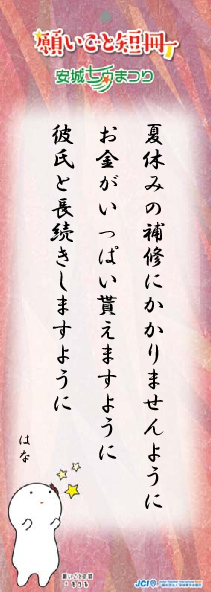 願いごと短冊
安城七夕まつり
夏休みの補修にかかりませんように
お金がいっぱい貰えますように
彼氏と長続きしますように
はな
JCI